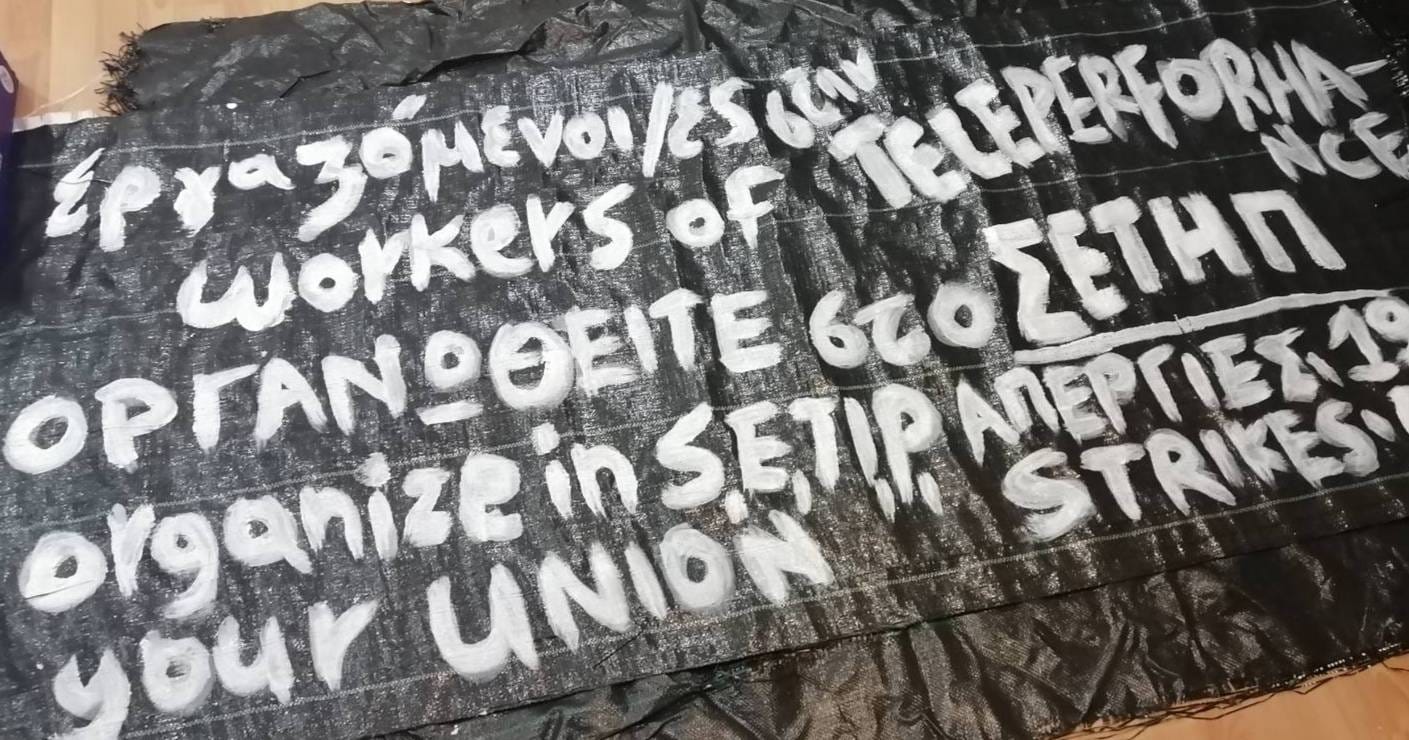 έργαζόμενοι/ες στην TELEPERFORMA-
NCE
workers of
ΟΡΓΑΝΩΘΕΙΤΕ στο ΣΕΤΗΠ
organize in S.E.TI.P.
your UNION
ΑΠΕΡΓΙΕΣ. 19
STRIKES.